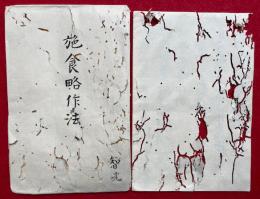 施食略作法
智光